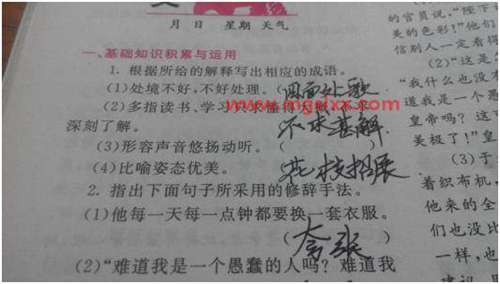 月 日 星期 天气
一、基础知识积累与运用
1. 根据所给的解释写出相应的成语。
(1)处境不好,不好处理。(四面处歌
(2)多指读书、学习只求懂得
深刻了解。 不求甚解
www.mgsixx.com
(3)形容声音悠扬动听。(
(4)比喻姿态优美。 花枝招展
2. 指出下面句子所采用的修辞手法。
(1)他每一天每一点钟都要换一套衣服。
(夸张
(2)“难道我是一个愚蠢的人吗?难道我
的官员说,“陛下
美的色彩!”他们
信别人一定看得
(2)“这是
“我什么也没
道我是一个愚
皇帝吗?这
美极了!”皇
(3)于
着织布机,
他来的全
们也没比
一样,也